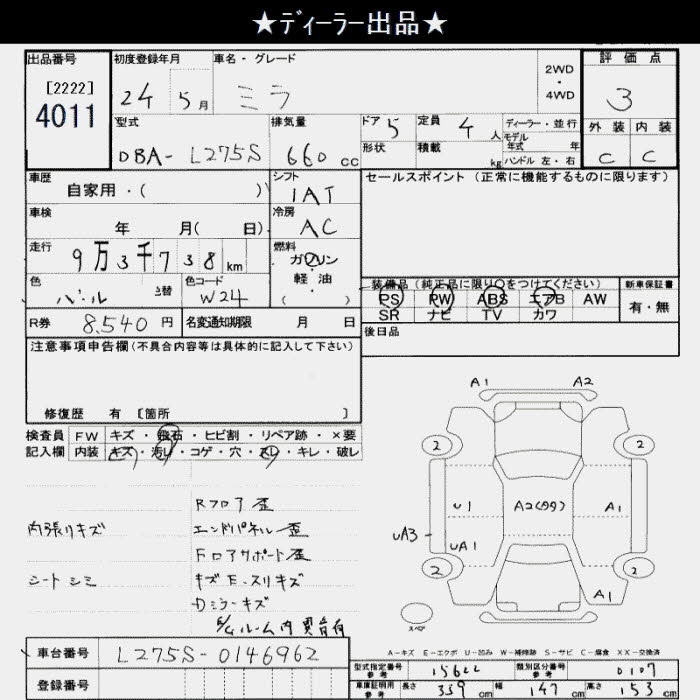 ★ディーラー出品★
出品番号 初度登録年月 車名・グレード 2WD・4WD 評価点
[2222] 4011 24 5月 ミラ 3
型式 排気量 ドア 5 定員 4人 ディーラー・並行 外装 内装
モデル年式 年
DBA- L275S 660cc 形状 積載 kg ハンドル 左・右 C C
車歴 自家用・( ) シフト IAT セールスポイント (正常に機能するものに限ります)
車検 年 月( 日) 冷房 AC
走行 9万3千738km 燃料 ガソリン・軽油 ( )
装備品 (純正品に限り○をつけてください) 新車保証書
色 パール 替 色コード W24 PS PW ABS エアB AW 有・無
SR ナビ TV カワ
R券 8,540円 名変通知期限 月 日 後日品
注意事項申告欄(不具合内容等は具体的に記入して下さい)
修復歴 有 [箇所 ]
検査員記入欄 FW キズ・飛石・ヒビ割・リペア跡・×要
内装 キズ・汚レ・コゲ・穴・スレ・キレ・破レ
A1 A2
2 2
U1 A2(99) A1
UA3 - UA1
2 2
A1
スペア
Rフロア歪
内張りキズ エンドパネル歪
Fロアサポート歪
シートシミ キズE・スリキズ
Dミラーキズ
ルーム内異音有
A-キズ E-エクボ U-凹み W-補修跡 S-サビ C-腐食 XX-交換済
車台番号 L275S-0146962
型式指定番号 参考 15622 類別区分番号 参考 0107
登録番号
車庫証明用 参考 長さ 339cm 幅 147cm 高さ 153cm